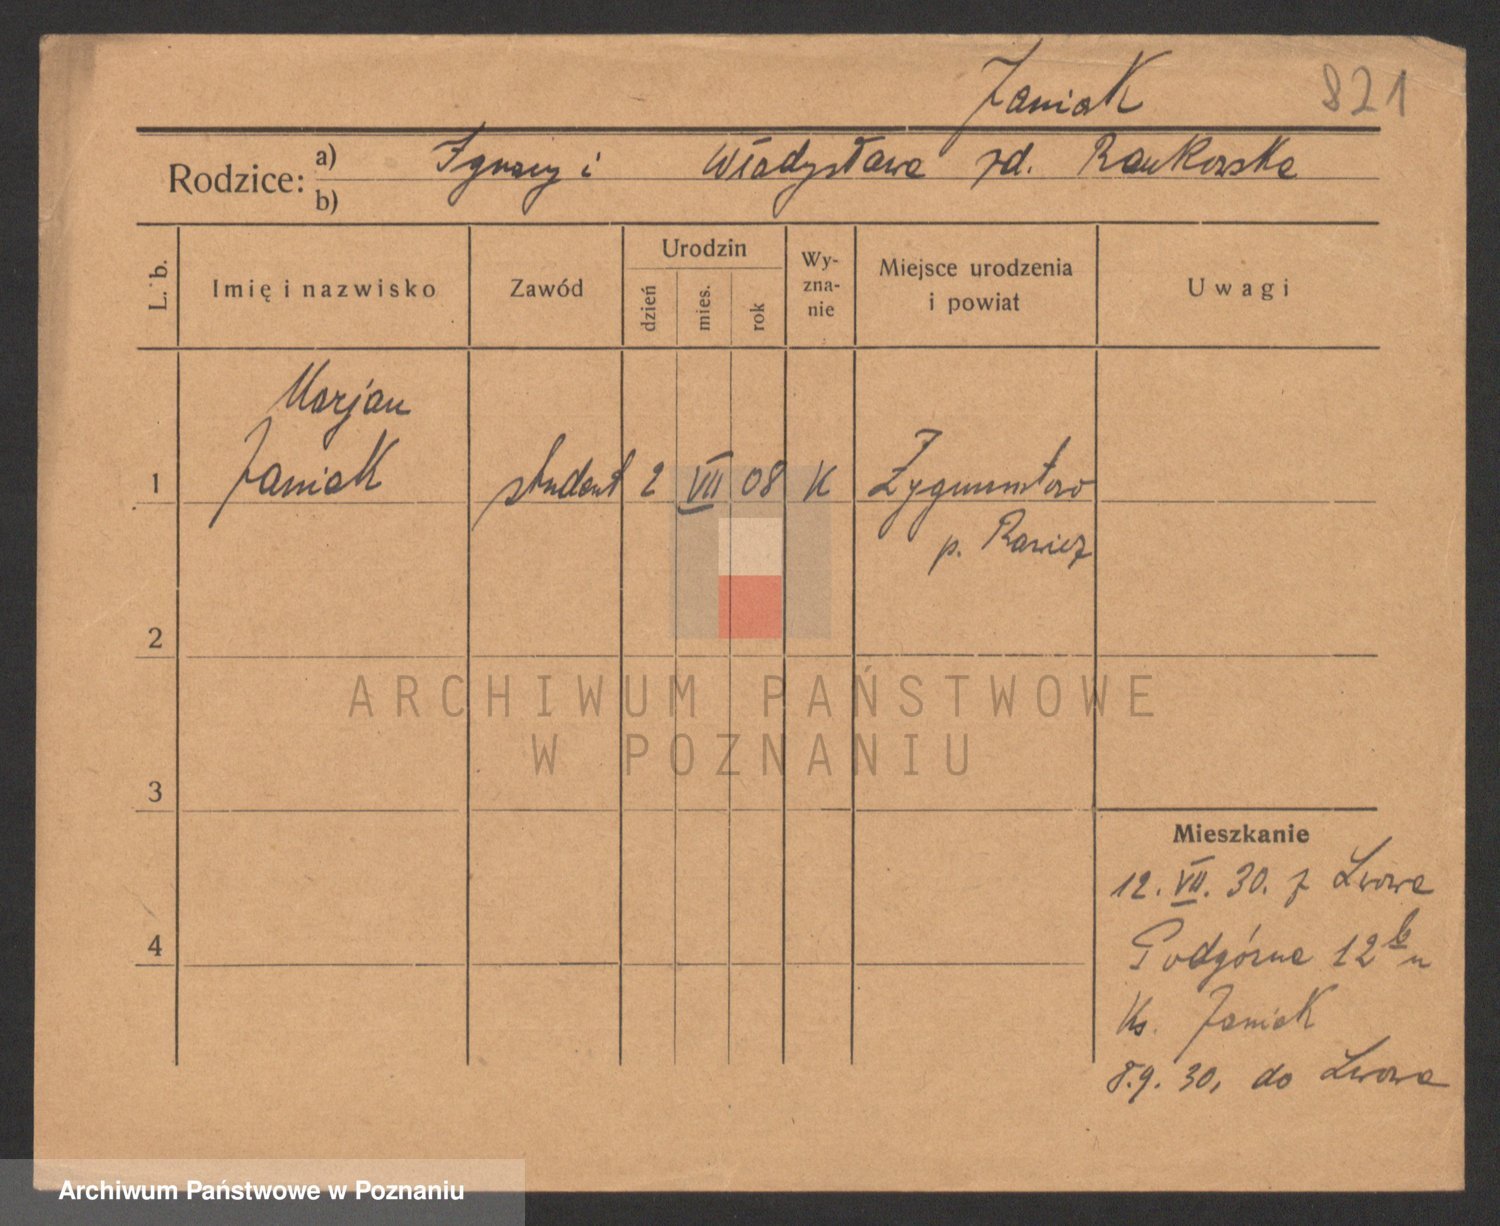 Janiak 821
Rodzice: a) Ignacy i Władysława zd. Rankowska
b)
L. b. Imię i nazwisko Zawód Urodzin dzień mies. rok Wy-zna-nie Miejsce urodzenia i powiat Uwagi
Marjan
1 Janiak student 2 VII 08 K Zygmuntowo
p. Rawicz
2
ARCHIWUM PAŃSTWOWE
W POZNANIU
3
Mieszkanie
12. VII. 30. z Lwowa
4 Podgórna 12
Ks. Janiak
8.9. 30, do Lwowa
Archiwum Państwowe w Poznaniu